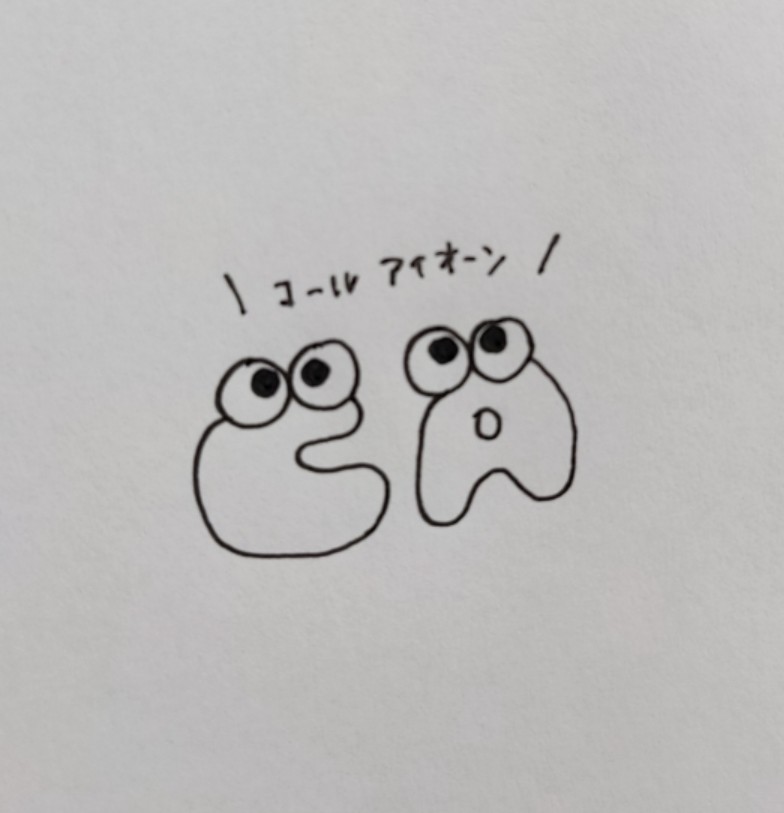 \ コールアイオーン /
CA